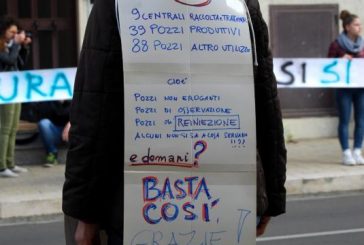 9 CENTRALI RACCOLTA E TRATTAM.
39 POZZI PRODUTTIVI
88 POZZI ALTRO UTILIZZO
CIOÈ
POZZI NON EROGANTI
POZZI DI OSSERVAZIONE
POZZI DI REINIEZIONE
ALCUNI NON SI SA A COSA SERVANO
!!??
e domani?
BASTA
COSÌ
GRAZIE!
URA
SI SI